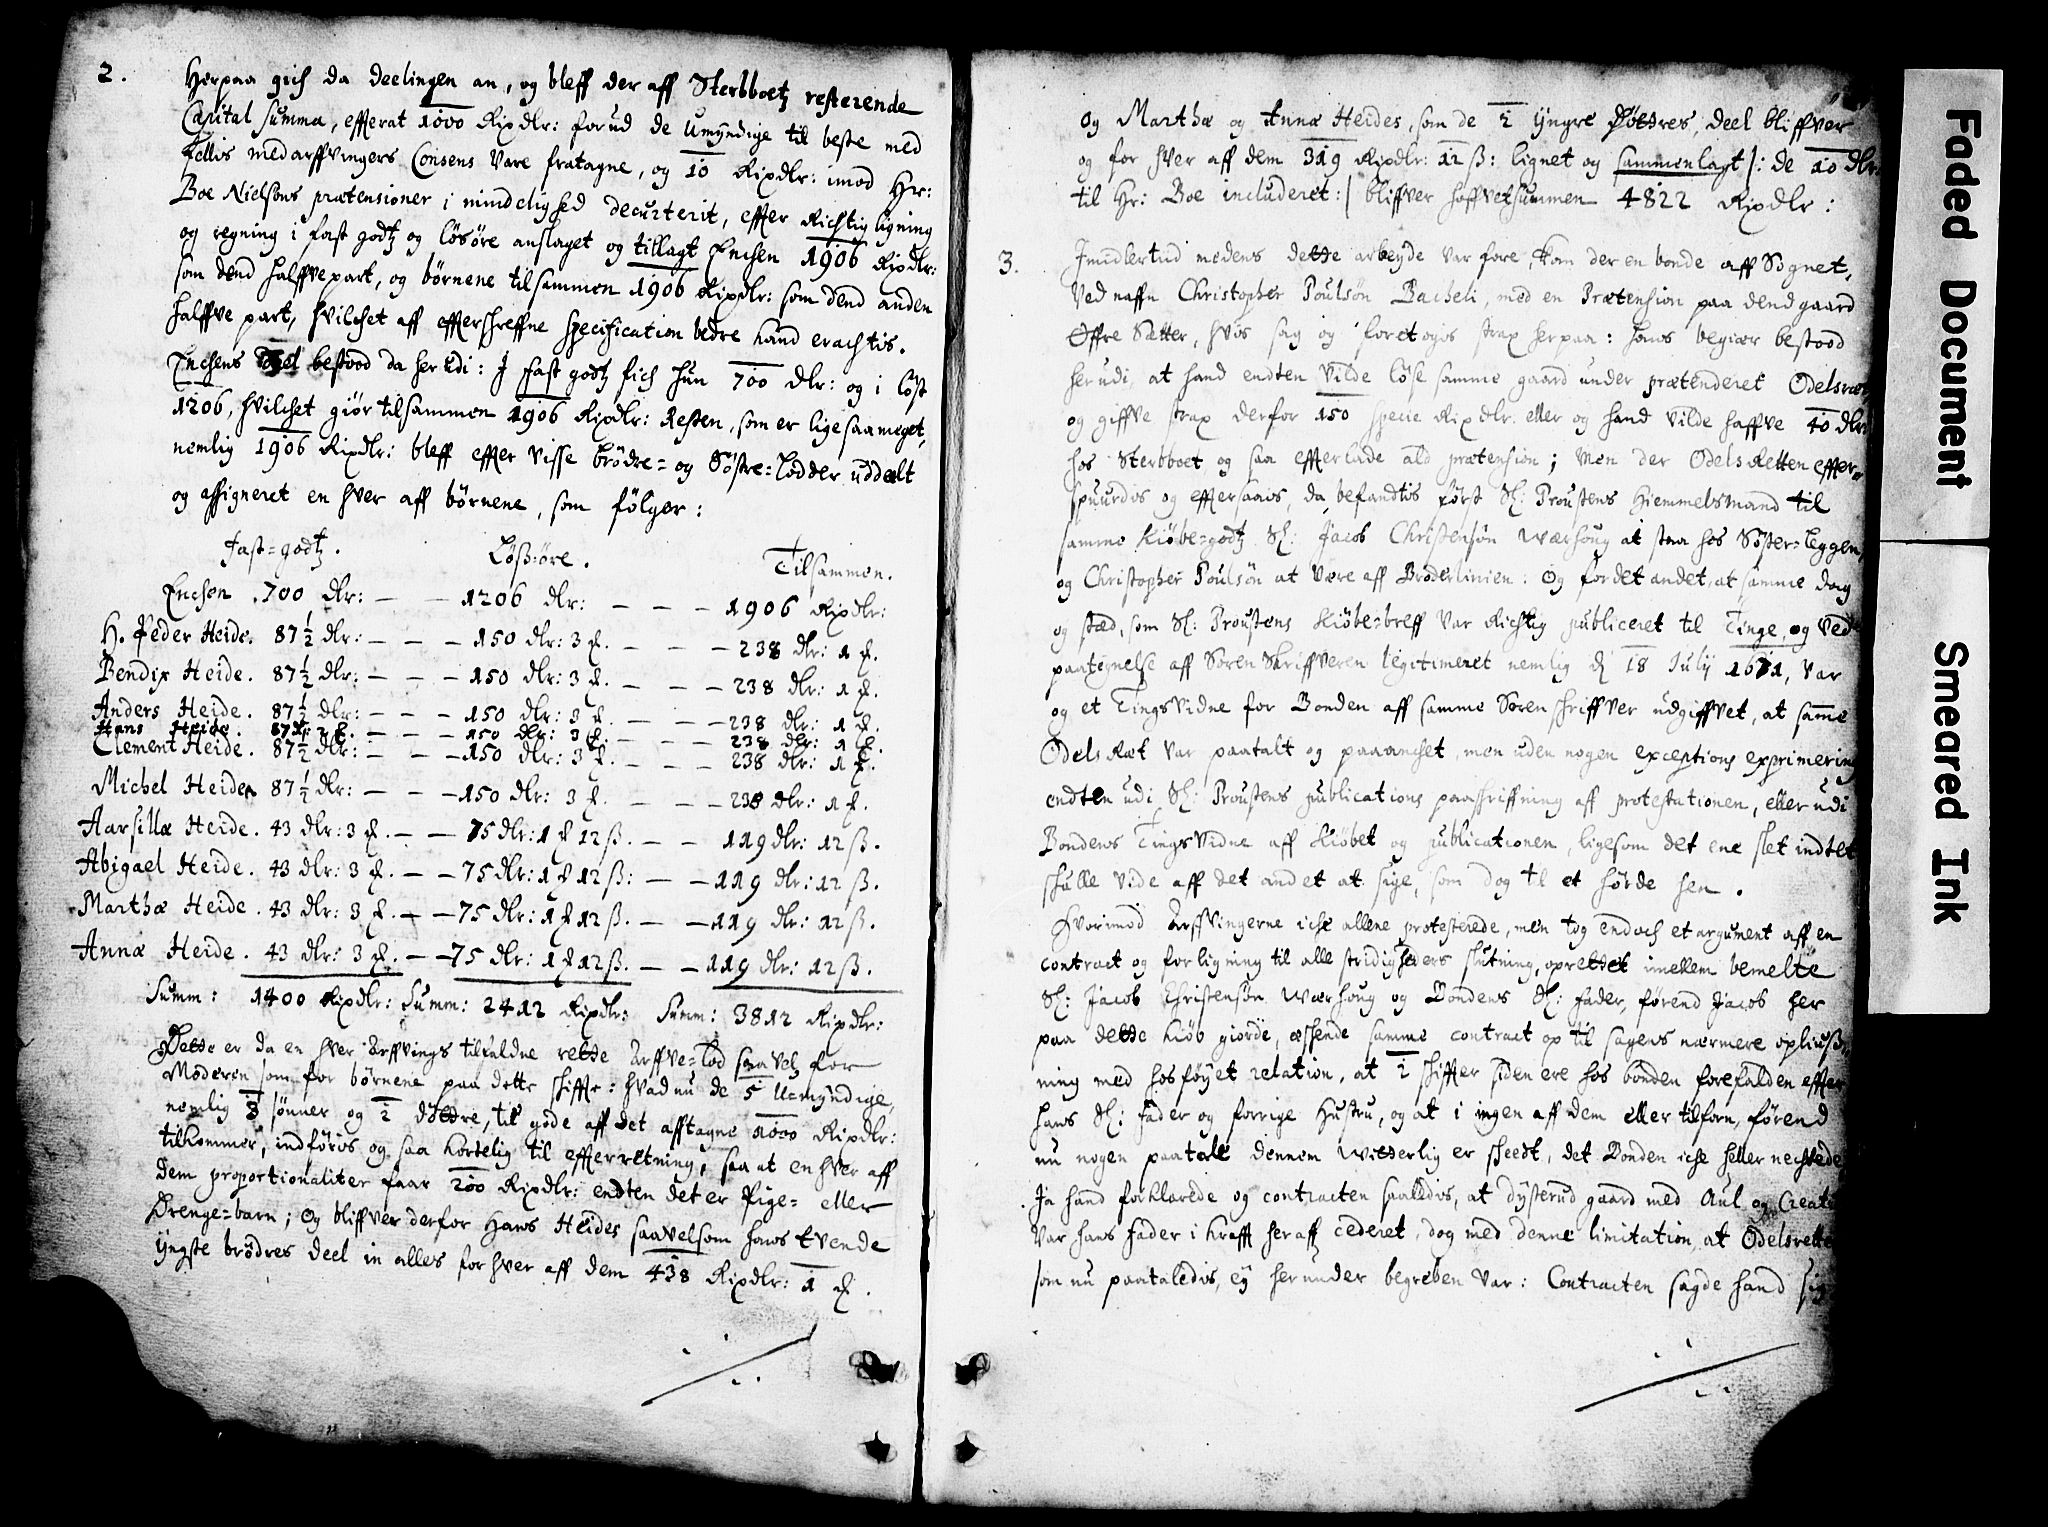 2. Herpaa gich da deelingen an, og bleff der aff Sterbboetz resterende
Capital summa, efferat 1000 Rixdlr: forud de Umyndige til beste med
fellis medarffvingers Consens vare fratagne, og 10 Rixdlr: imod Hr:
Boe Nielsøns prætensioner i mindelighed decurterit, effter Richtig ligning
og regning i fast godtz og løsöre anslaget og tillagt Enchen 1906 Rixdlr:
som dend halffvepart, og börnene tilsammen 1906 Rixdlr: som dend anden
halffve part, hvilchet aff effterschreffne specification bedre kand erachtis.
Enchens deel bestood da herudi: I fast godtz fich hun 700 dlr: og i löst
1206, hvilchet giör tilsammen 1906 Rixdlr: Resten, som er lige saameget,
nemlig 1906 Rixdlr: bleff effter visse brödre= og Söstre=Lodder uddelt
og assigneret en hver aff börnene, som fölger:
Fast=godtz. Löß=öre. Tilsammen.
Enchen .700 dlr: — — 1206 dlr: — — — 1906 Rixdlr:
H. Peder Heide. 87½ dlr: — — — 150 dlr: 3 ₰. — — — 238 dlr: 1 ₰.
Bendix Heide. 87½ dlr: — — — 150 dlr: 3 ₰. — — — 238 dlr: 1 ₰.
Anders Heide. 87½ dlr: — — — 150 dlr: 3 ₰. — — — 238 dlr: 1 ₰.
Hans Heide. 87 — — — 150 dlr: 3 ₰. — — — 238 dlr: 1 ₰.
Clement Heide. 87½ dlr: — — — 150 dlr: 3 ₰. — — — 238 dlr: 1 ₰.
Michel Heide 87½ dlr: — — — 150 dlr: 3 ₰. — — — 238 dlr: 1 ₰.
Aarsillæ Heide. 43 dlr: 3 ₰. — — 75 dlr: 1 ₰ 12 ß. — — 119 dlr: 12 ß.
Abigael Heide. 43 dlr: 3 ₰. — — 75 dlr: 1 ₰ 12 ß: — — 119 dlr: 12 ß.
Marthæ Heide. 43 dlr: 3 ₰. — — 75 dlr: 1 ₰ 12 ß. — — 119 dlr: 12 ß.
Annæ Heide. 43 dlr: 3 ₰. — — 75 dlr: 1 ₰ 12 ß. — — 119 dlr: 12 ß.
Summ: 1400 Rixdlr: Summ: 2412 Rixdlr: Summ: 3812 Rixdlr:
Dette er da en hver Arffvings tilfaldne rette Arffve=Lod saavel for
Moderen som for börnene paa dette schiffte: hvad nu de 5 Umyndige,
nemlig 3 sönner og 2 döttre, til gode aff det afftagne 1000 Rixdlr:
tilkommer, indföris og saa kortelig til effterretning, saa at en hver aff
dem proportionaliter faar 200 Rixdlr: endten det er Pige= eller
Drenge=barn; Og bliffver derfor Hans Heides saavelsom hans tvende
ÿngste brödres deel in alles for hver aff dem 438 Rixdlr: 1 ₰.
og Marthæ og Annæ Heides, som de 2 ÿngre Døttres, deel bliffver
og for hver aff dem 319 Rixdlr: 12 ß: lignet og sammenlagt /: de 10 dlr:
til Hr: Boe includeret:/ bliffver hoffvetsummen 4822 Rixdlr:
3. Imidlertiid medens dette arbeyde var fore, kom der en bonde aff Sognet,
Ved naffn Christopher Poulsøn Bacheli, med en Prætension paa dend gaard
Offre Sætter, hvis sag og foretogis strax herpaa: hans begiær bestood
herudi, at hand endten vilde löse samme gaard under prætenderet Odelsræt
og giffve strax derfor 150 specie Rixdlr. eller og hand vilde haffve 40 dlr:
hos Sterbboet og saa effterlade ald prætension; Men der Odels Retten effter=
spuurdis og effter saais, da befandtis först Sl: Proustens Hiemmelsmand til
samme Kiöbe=godtz Sl: Jacob Christensøn Wærhoug at staa hos Söster=Leggen,
og Christopher Poulsøn at være aff Broderlinien: Og for det andet, at samme dag
og stæd, som Sl: Proustens Kiöbe=breff var Richtig publiceret til Tinge, og ved
paategnelse aff Sorenskriffveren legitimeret nemlig d 18 Julij 1671, var
og et Tingsvidne for Bonden aff samme Sorenschriffver udgiffvet, at samme
Odels Ræt var paatalt og paaanchet, men uden nogen exceptions exprimering
endten udi Sl: Proustens publications paaschriffning aff protestationen, eller udi
Bondens Tingsvidne aff Kiöbet og publicationen, ligesom det ene slet indtet
schulle vide aff det andet at sige, som dog til et hörde hen.
Hvorimod Arffvingerne iche allene protesterede, men tog endoch et argument aff en
contract og forligning til alle stridigheders slutning, oprettet imellem bemelte
Sl: Jacob Christensøn Wærhoug og Bondens Sl: Fader, förend Jacob her
paa dette Kiöb giorde, æschende samme contract op til sagens nærmere opliuß=
ning med hosföÿet relation, at 2 schiffter siden ere hos bonden forefalden effter
hans Sl: Fader og forrige Hustru, og at i ingen aff dem eller tilforn, förend
nu nogen paatale dennem witterlig er scheedt, det Bonden iche heller nechtede
Ja hand forklarede og contracten saaledis, at Dÿsterud gaard med Aul og Creatu
var hans Fader i Krafft heraff cederet, dog med denne limitation, at Odelsretten
som nu paataledis, eÿ herunder begreben var: Contracten sagde hand sig
Faded Document
Smeared Ink